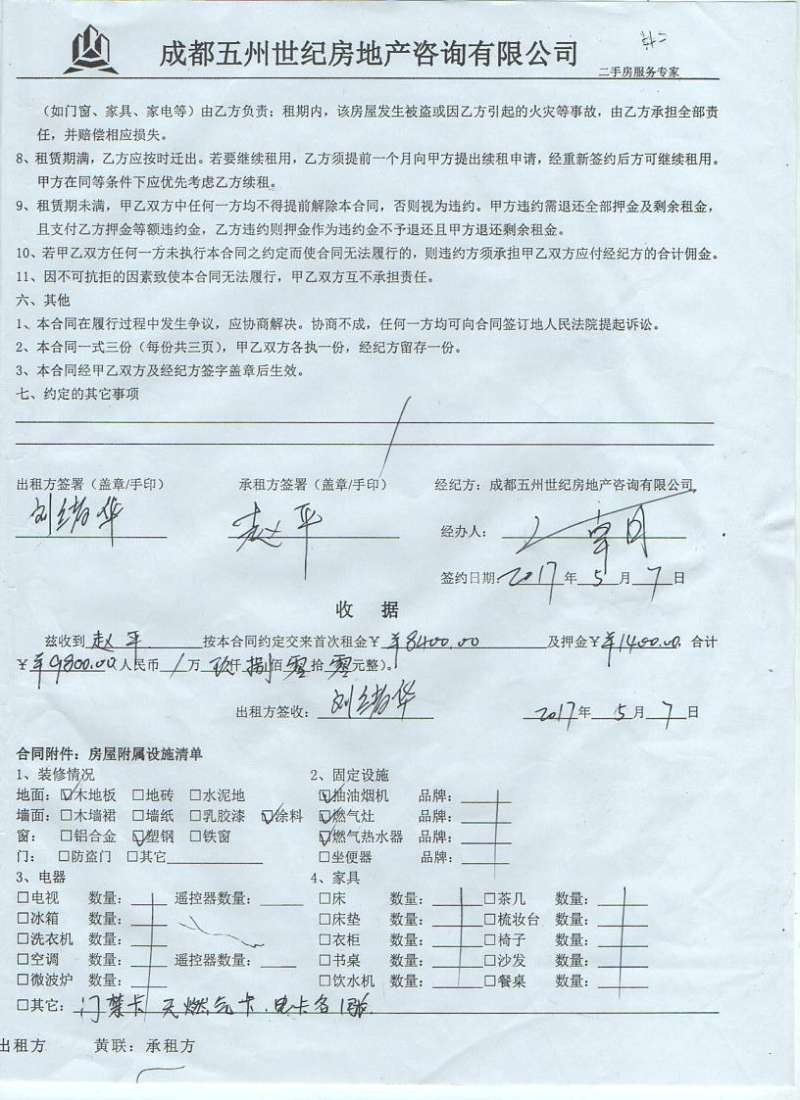 成都五州世纪房地产咨询有限公司
二手房服务专家
（如门窗、家具、家电等）由乙方负责；租期内，该房屋发生被盗或因乙方引起的火灾等事故，由乙方承担全部责
任，并赔偿相应损失。
8、租赁期满，乙方应按时迁出。若要继续租用，乙方须提前一个月向甲方提出续租申请，经重新签约后方可继续租用。
甲方在同等条件下应优先考虑乙方续租。
9、租赁期未满，甲乙双方中任何一方均不得提前解除本合同，否则视为违约。甲方违约需退还全部押金及剩余租金，
且支付乙方押金等额违约金，乙方违约则押金作为违约金不予退还且甲方退还剩余租金。
10、若甲乙双方任何一方未执行本合同之约定而使合同无法履行的，则违约方须承担甲乙双方应付经纪方的合计佣金。
11、因不可抗拒的因素致使本合同无法履行，甲乙双方互不承担责任。
六、其他
1、本合同在履行过程中发生争议，应协商解决。协商不成，任何一方均可向合同签订地人民法院提起诉讼。
2、本合同一式三份（每份共三页），甲乙双方各执一份，经纪方留存一份。
3、本合同经甲乙双方及经纪方签字盖章后生效。
七、约定的其它事项
出租方签署（盖章/手印） 承租方签署（盖章/手印） 经纪方：成都五州世纪房地产咨询有限公司
刘绪华 赵平 经办人：
签约日期：2017年5月7日
收 据
兹收到赵平 按本合同约定交来首次租金￥¥8400.00 及押金￥¥1400.00. 合计
￥¥9800.00人民币 / 万 玖仟捌佰零拾零元整）。
出租方签收：刘绪华 2017年5月7日
合同附件：房屋附属设施清单
1、装修情况 2、固定设施
地面：☑木地板 □地砖 □水泥地 ☑抽油烟机 品牌：
墙面：□木墙裙 □墙纸 □乳胶漆 ☑涂料 ☑燃气灶 品牌：
窗： □铝合金 ☑塑钢 □铁窗 ☑燃气热水器 品牌：
门： □防盗门 □其它 □坐便器 品牌：
3、电器 4、家具
□电视 数量： 遥控器数量： □床 数量： □茶几 数量：
□冰箱 数量： □床垫 数量： □梳妆台 数量：
□洗衣机 数量： □衣柜 数量： □椅子 数量：
□空调 数量： 遥控器数量： □书桌 数量： □沙发 数量：
□微波炉 数量： □饮水机 数量： □餐桌 数量：
□其它：门禁卡 天燃气卡.电卡各1张
出租方 黄联：承租方